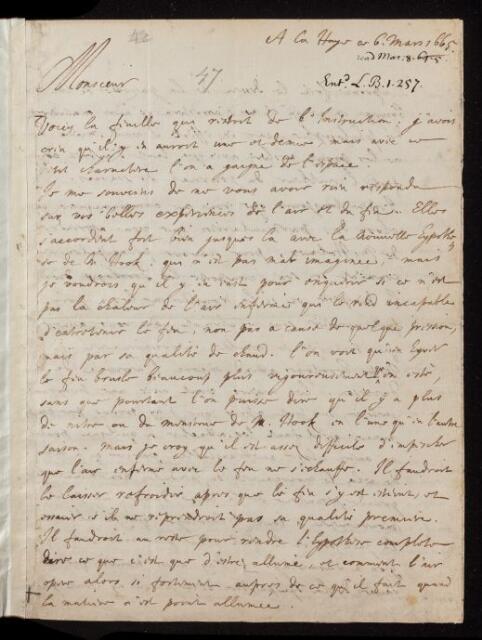 42
A la Haye ce 6. Mars 1665.
read Mar. 8. 64/5
47
Ent.d L.B.1.257.
Monsieur
Voicy la fueille qui restoit de l'Instruction. j'avois
creu qu'il y en auroit une et demie, mais avec ce
petit charactere l'on a gaigné de l'espace.
Je me souviens de ne vous avoir rien respondu
sur vos belles experiences de l'air et du feu. Elles
s'accordent fort bien jusques la avec la nouvelle hypothe-
se de M. Hook. qui n'est pas mal imaginée. mais
je voudrois qu'il y en eust pour enquerir si ce n'est
pas la chaleur de l'air enfermè qui le rend incapable
d'entretenir le feu, non pas a cause de quelque pression,
mais par sa qualité de chaud. l'on voit qu'en hyver
le feu brusle beaucoup plus vigoureusement qu'en esté,
sans que pourtant l'on puisse dire qu'il y a plus
de nitre ou du menstrue de M. Hook en l'une qu'en l'autre
saison. Mais je croy qu'il est assez difficile d'empescher
que l'air enfermè avec le feu ne s'echauffe. Il faudroit
le laisser refroidir apres que le feu s'y est esteint, et
essaier s'il ne reprendroit pas sa qualitè premiere.
Il faudroit au reste pour rendre l'hypothese complete
dire ce que c'est que d'estre allumé, et comment l'air
opere alors si fortement aupres de ce qu'il fait quand
la matiere n'est point allumée.